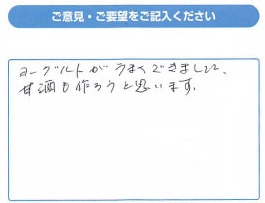 ご意見・ご要望をご記入ください
ヨーグルトがうまくできました、
甘酒も作ろうと思います。